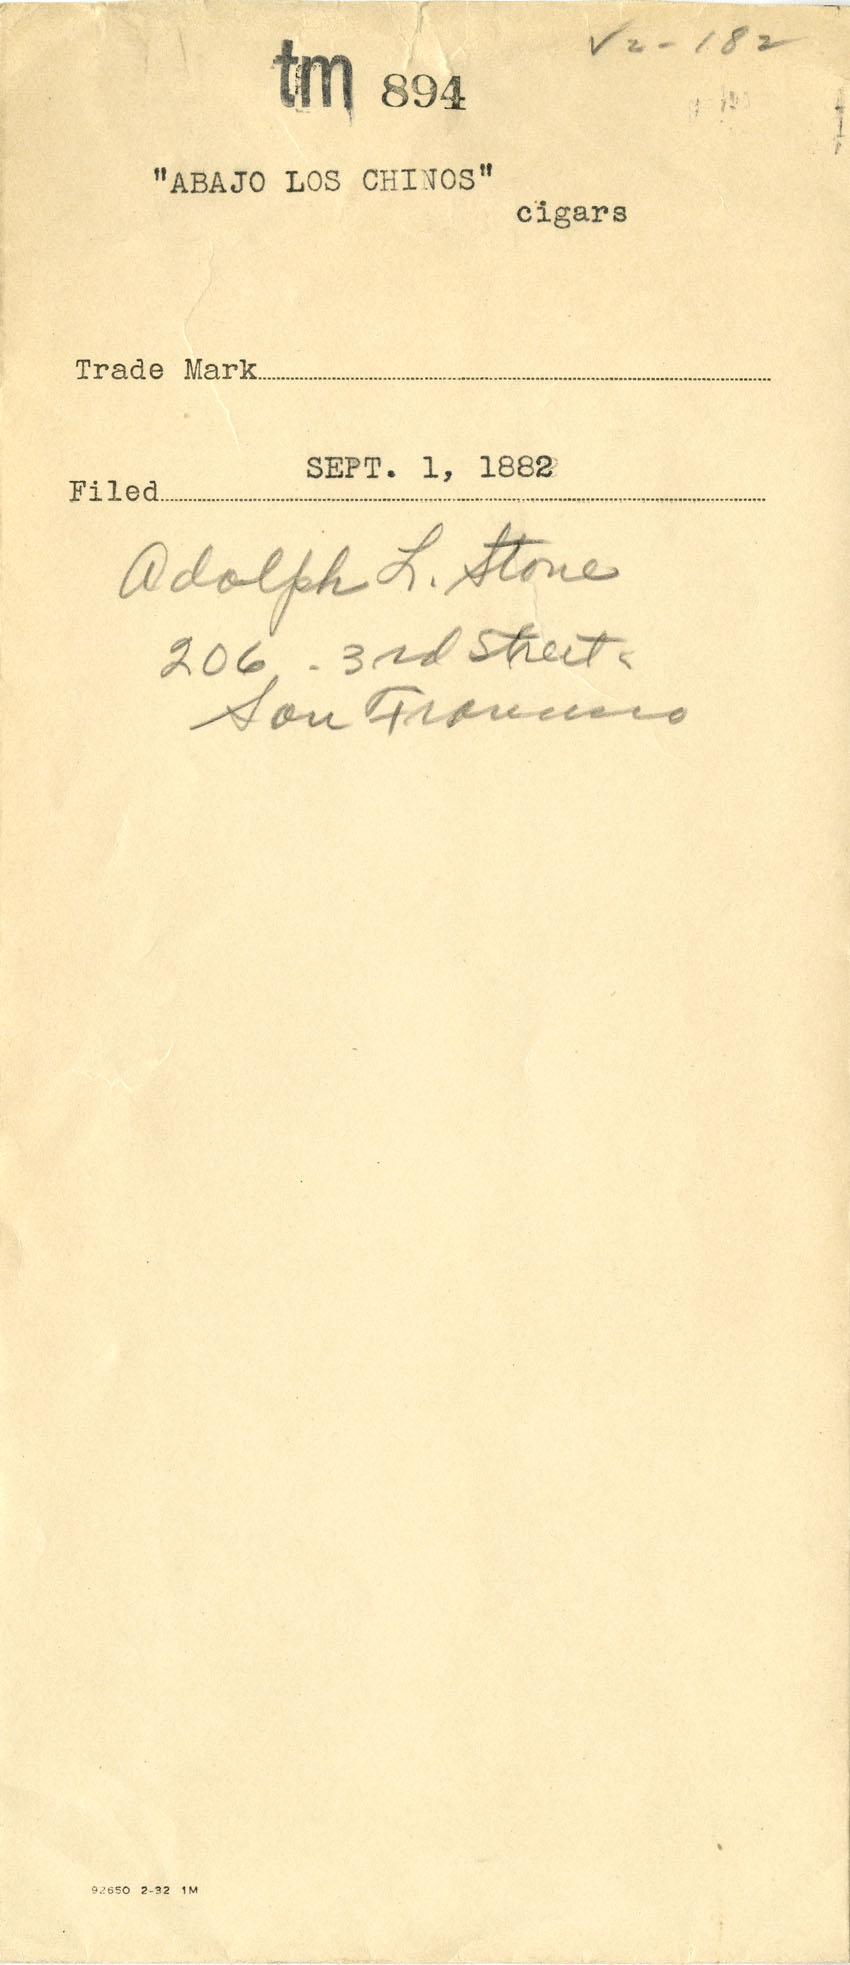 V2-182
tm 894
"ABAJO LOS CHINOS"
cigars
Trade Mark
Filed SEPT. 1, 1882
Adolph L. Stone
206 - 3rd Street
San Francisco
92650 2-32 1M